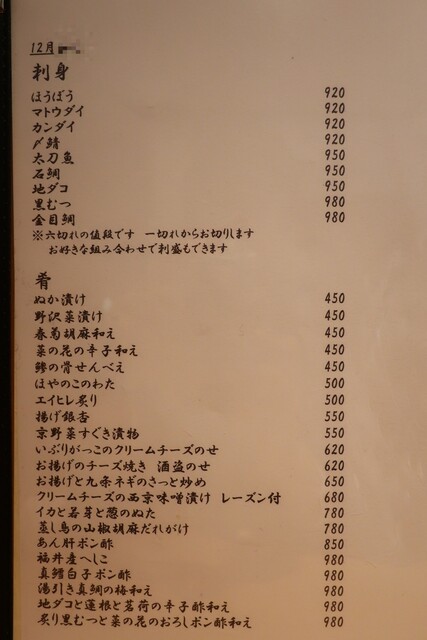 12月
刺身
ほうぼう 920
マトウダイ 920
カンダイ 920
〆鯖 920
太刀魚 950
石鯛 950
地ダコ 950
黒むつ 980
金目鯛 980
※六切れの値段です 一切れからお切りします
お好きな組み合わせで刺盛もできます
肴
ぬか漬け 450
野沢菜漬け 450
春菊胡麻和え 450
菜の花の辛子和え 450
鯵の骨せんべえ 450
ほやのこのわた 500
エイヒレ炙り 500
揚げ銀杏 550
京野菜すぐき漬物 550
いぶりがっこのクリームチーズのせ 620
お揚げのチーズ焼き 酒盗のせ 620
お揚げと九条ネギのさっと炒め 650
クリームチーズの西京味噌漬け レーズン付 680
イカと若芽と葱のぬた 780
蒸し鳥の山椒胡麻だれがけ 780
あん肝ポン酢 850
福井産へしこ 980
真鱈白子ポン酢 980
湯引き真鯛の梅和え 980
地ダコと蓮根と茗荷の辛子酢和え 980
炙り黒むつと菜の花のおろしポン酢和え 980